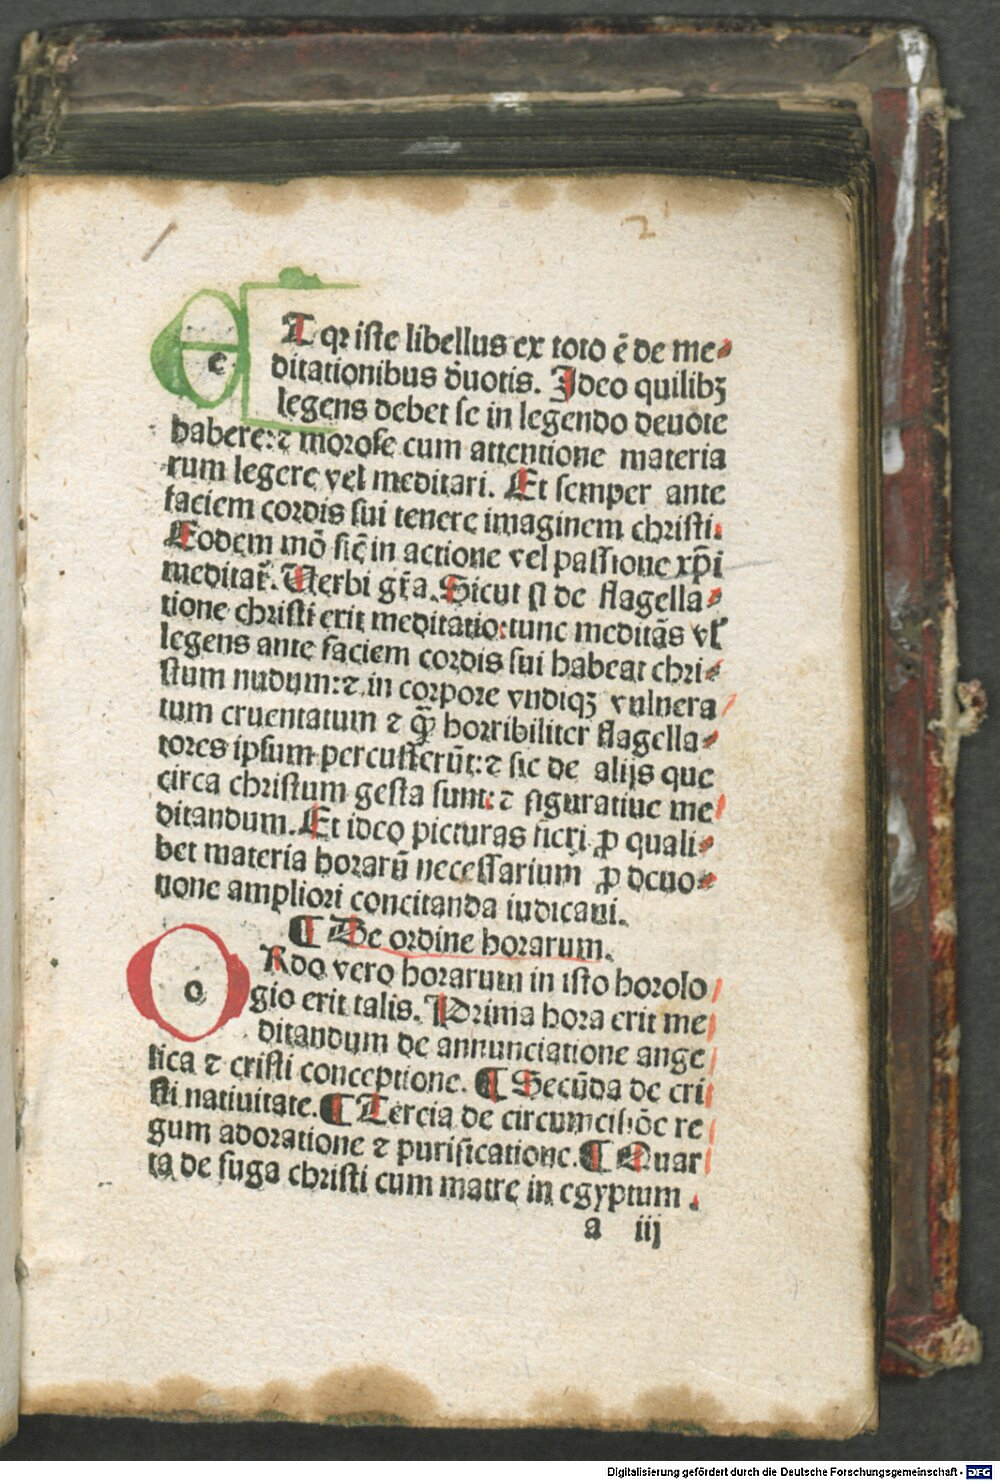 2
ET qꝛ iste libellus ex toto ē de me⸗
ditationibus d̓uotis. Ideo quilibꝫ
legens debet se in legendo deuote
habere: ⁊ morose cum attentione materia
rum legere vel meditari. Et semper ante
faciem cordis sui tenere imaginem christi.
Eodem mō sic̄ in actione vel passione xp̄i
meditaꝝ̄. Uerbi gr̄a. Sicut si de flagella⸗
tione christi erit meditatio: tunc meditās vl̓
legens ante faciem cordis sui habeat chri⸗
stum nudum: ⁊ in corpore vndiqꝫ vulnera
tum cruentatum ⁊ qͣꝫ horribiliter flagella⸗
tores ipsum percusserūt: ⁊ sic de alijs que
circa christum gesta sunt: ⁊ figuratiue me
ditandum. Et ideo picturas fieri ꝓ quali⸗
bet materia horarū necessarium ꝓ deuo⸗
tione ampliori concitanda iudicaui.
¶ De ordine horarum.
ORdo vero horarum in isto horolo
gio erit talis. Prima hora erit me
ditandum de annunciatione ange
lica ⁊ cristi conceptione. ¶ Secūda de cri
sti natiuitate. ¶ Tercia de circumcisiōe re
gum adoratione ⁊ purificatione. ¶ Quar
ta de fuga christi cum matre in egyptum.
a iij
Digitalisierung gefördert durch die Deutsche Forschungsgemeinschaft - DFG